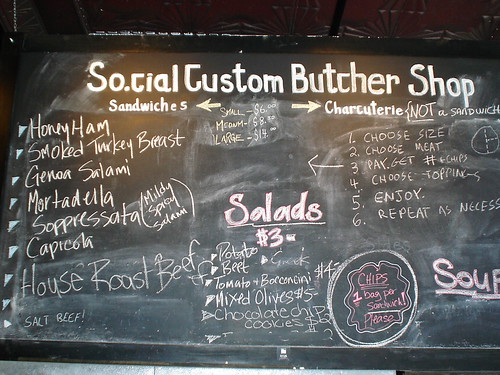 So.cial Custom Butcher Shop
Sandwiches
SMALL - $6.00
MEDIUM - $8.00
LARGE - $14.00
Charcuterie (NOT a sandwich
Honey Ham
Smoked Turkey Breast
Genoa Salami
Mortadella
Soppressata (Mildly Spicy Salami)
Capicola
House Roast Beef
SALT BEEF!
1. CHOOSE SIZE
2. CHOOSE MEAT
3. PAY. GET # + CHIPS
4. CHOOSE TOPPINGS
5. ENJOY.
6. REPEAT AS NECESS
Salads
$3-
Potato
Beet
Greek
Tomato + Bocconcini $4
Mixed Olives $5-
Chocolate chip
cookies $
CHIPS
1 bag per
sandwich!
Please
SOUP